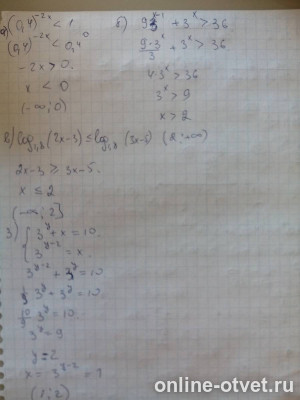 а) (0,4)^{-2x} < 1
(0,4)^{-2x} < 0,4^0
-2x > 0
x < 0
(-∞; 0)
б) 9·3^{x-1} + 3^x > 36
9·3^x/3 + 3^x > 36
4·3^x > 36
3^x > 9
x > 2
(2; +∞)
(2x-3) ≤ log (3x-5)
2x-3 ≥ 3x-5
x ≤ 2
(-∞; 2]
3) { 3^y + x = 10
3^{y-2} = x
3^{y-2} + 3^y = 10
1/9 3^y + 3^y = 10
10/9 3^y = 10
3^y = 9
y = 2
x = 3^{y-2} = 1
(1; 2)
online-otvet.ru